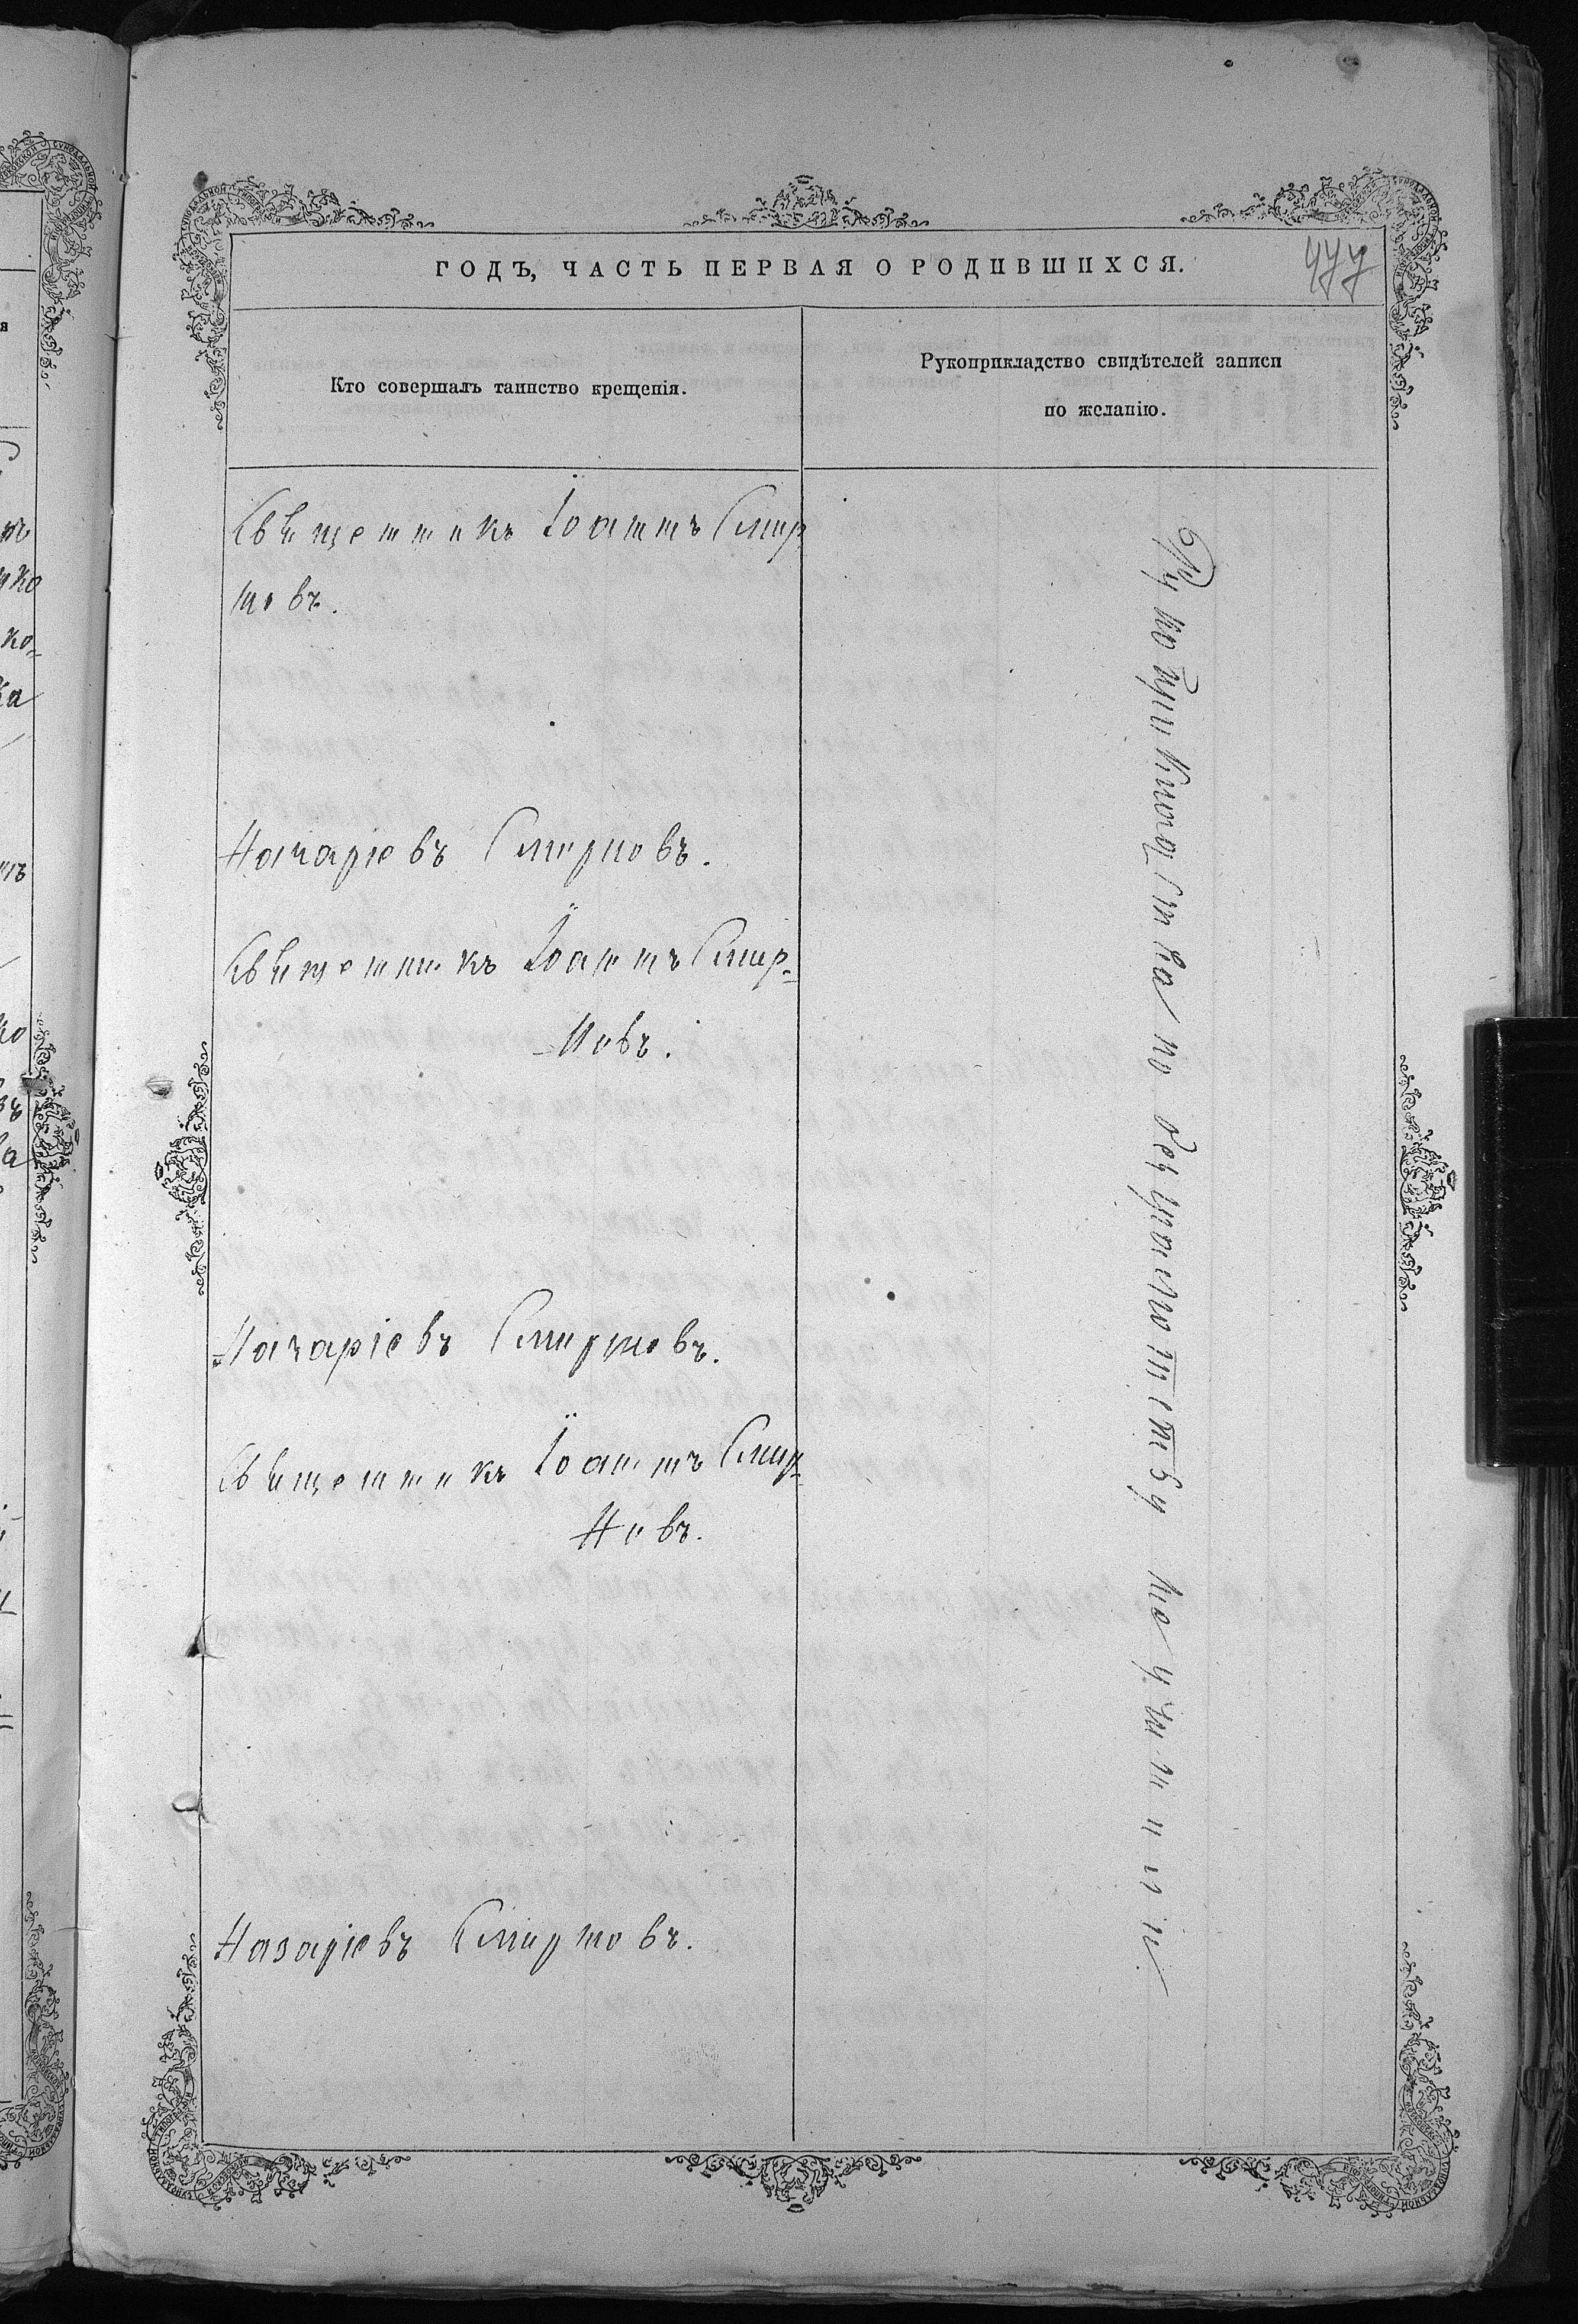 ГОДЪ, ЧАСТЬ ПЕРВАЯ О РОДИВШИХСЯ.
Кто совершалъ таинство крещенія.
Рукоприкладство свидѣтелей записи
по желанію.
Священникъ Іоаннъ Смир
новъ.
Назаріевъ Смирновъ.
Священникъ Іоаннъ Смир-
новъ.
Назаріевъ Смирновъ.
Священникъ Іоаннъ Смир-
новъ.
Назаріевъ Смирновъ.
Рукоприкладства по безграмотству не учинили